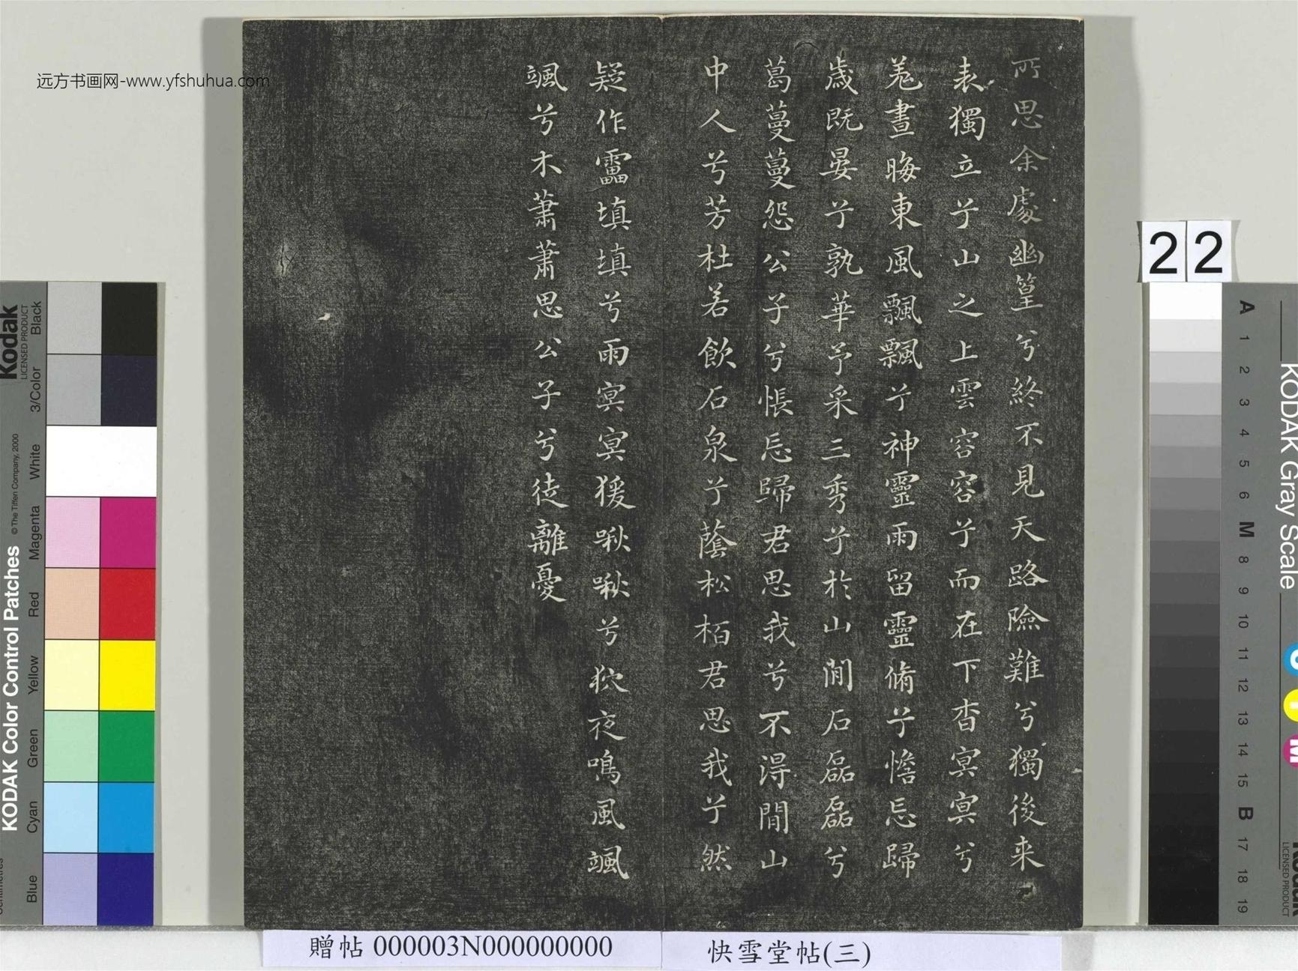 远方书画网-www.yfshuhua.com
所思余處幽篁兮終不見天路險難兮獨後来
表獨立兮山之上雲容容兮而在下杳冥冥兮
羌晝晦東風飄飄兮神靈雨留靈脩兮憺忘歸
歲既晏兮孰華予采三秀兮於山間石磊磊兮
葛蔓蔓怨公子兮悵忘歸君思我兮不得閒山
中人兮芳杜若飲石泉兮蔭松栢君思我兮然
疑作靁填填兮雨冥冥猨啾啾兮狖夜鳴風颯
颯兮木蕭蕭思公子兮徒離憂
贈帖 000003N000000000
快雪堂帖(三)
22
KODAK Color Control Patches
© The Tiffen Company, 2000
Kodak
LICENSED PRODUCT
Blue
Cyan
Green
Yellow
Red
Magenta
White
3/Color
Black
KODAK Gray Scale
A 1 2 3 4 5 6 M 8 9 10 11 12 13 14 15 B 17 18 19
Kodak
LICENSED PRODUCT